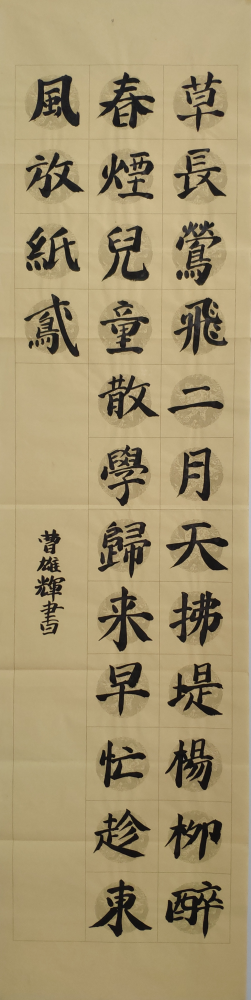 草長鶯飛二月天拂堤楊柳醉
春煙兒童散學歸来早忙趁東
風放紙鳶
曹雄輝書